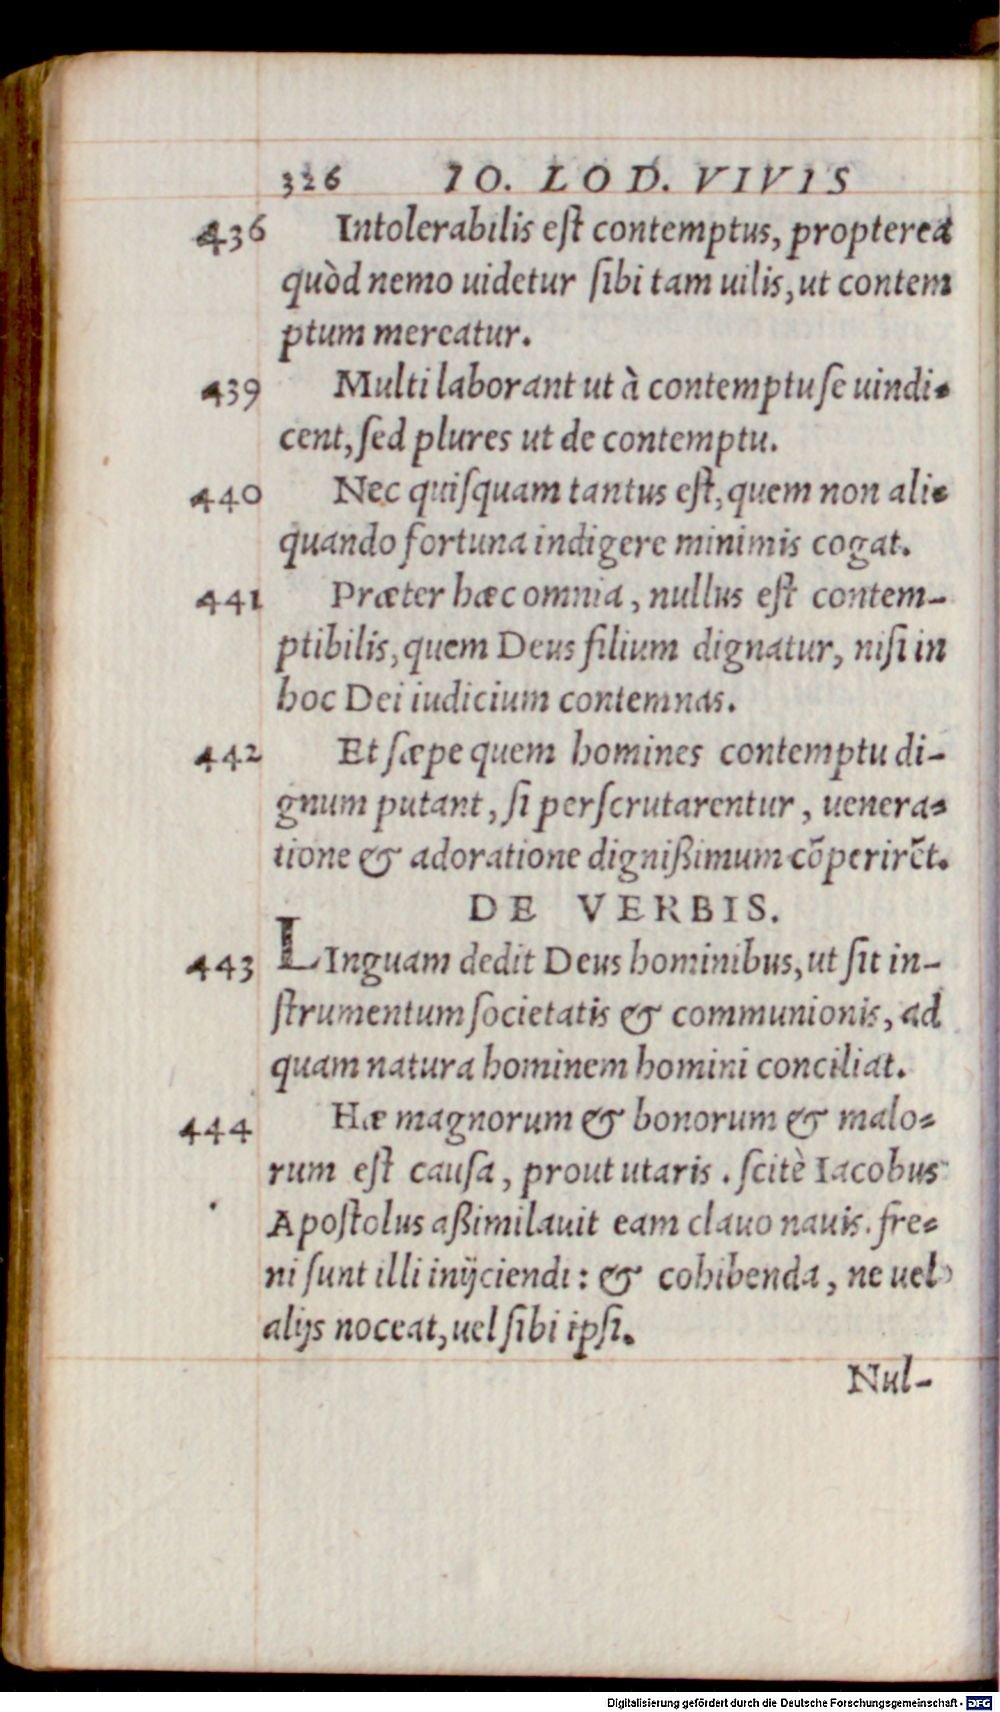 326 IO. LOD. VIVIS
436 Intolerabilis eſt contemptus, propterea
quòd nemo uidetur ſibi tam uilis, ut contem
ptum mereatur.
439 Multi laborant ut à contemptu ſe uindi-
cent, ſed plures ut de contemptu.
440 Nec quiſquam tantus eſt, quem non ali-
quando fortuna indigere minimis cogat.
441 Præter hæc omnia, nullus eſt contem-
ptibilis, quem Deus filium dignatur, niſi in
hoc Dei iudicium contemnas.
442 Et ſæpe quem homines contemptu di-
gnum putant, ſi perſcrutarentur, uenera-
tione & adoratione dignißimum cōperirēt.
DE VERBIS.
443 LInguam dedit Deus hominibus, ut ſit in-
ſtrumentum ſocietatis & communionis, ad
quam natura hominem homini conciliat.
444 Hæ magnorum & bonorum & malo-
rum eſt cauſa, prout utaris. ſcitè Iacobus
Apoſtolus aßimilauit eam clauo nauis. fre-
ni ſunt illi inijciendi: & cohibenda, ne uel
alijs noceat, uel ſibi ipſi.
Nul-
Digitalisierung gefördert durch die Deutsche Forschungsgemeinschaft - DFG